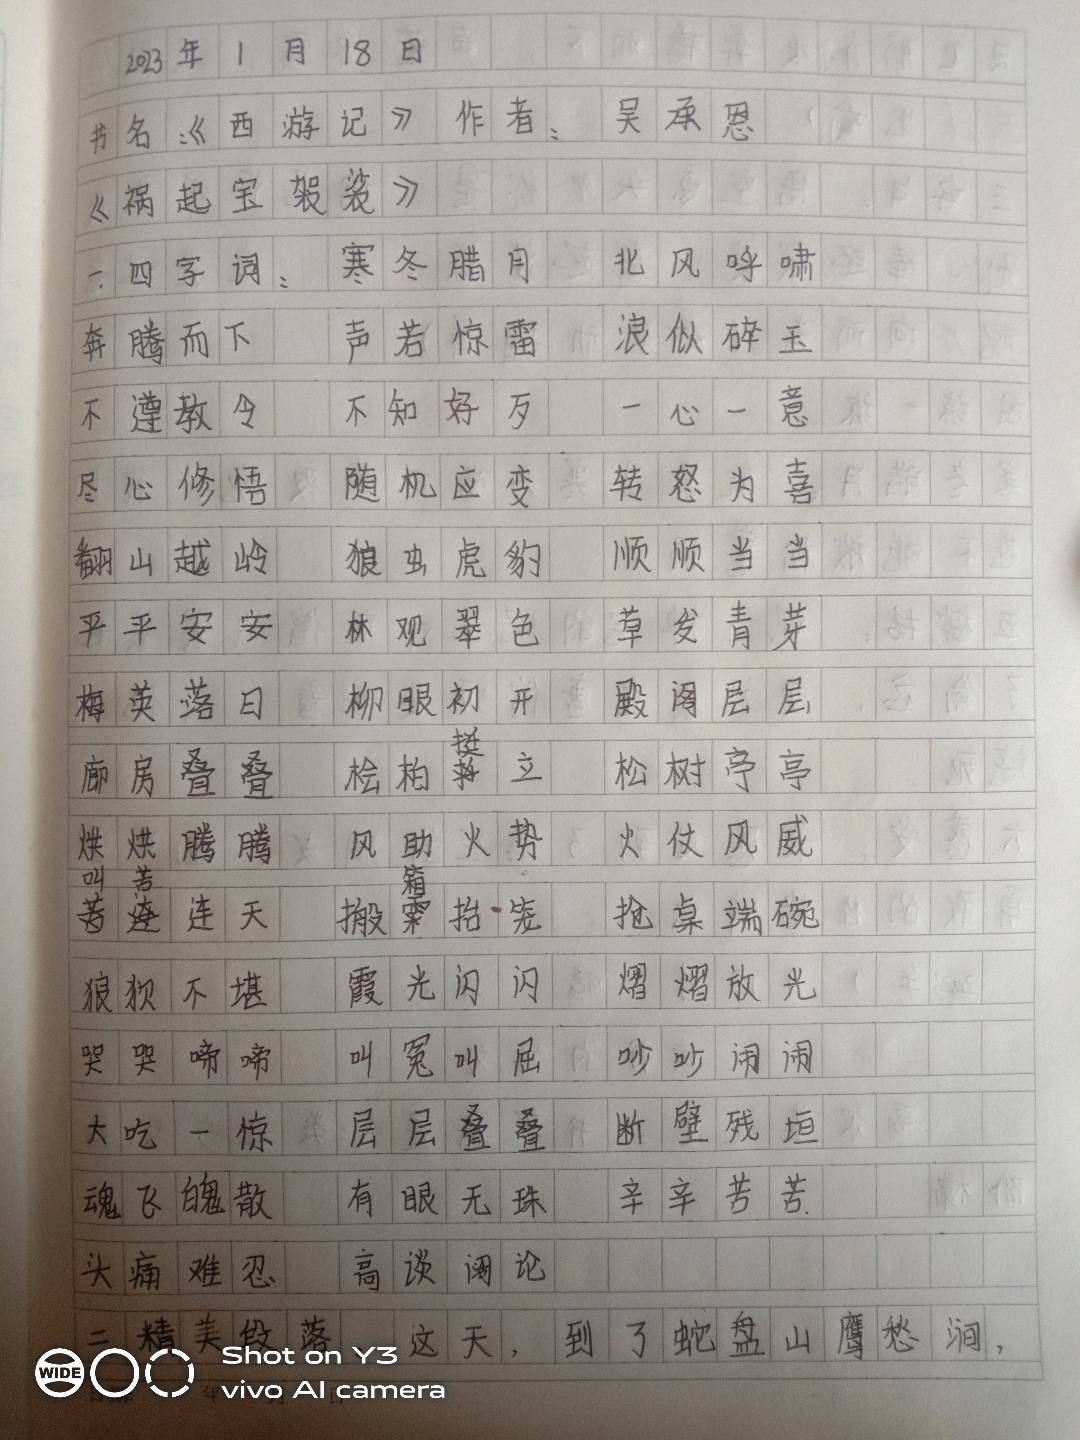 2023年1月18日
书名:《西游记》 作者: 吴承恩
《祸起宝袈裟》
一.四字词: 寒冬腊月 北风呼啸
奔腾而下 声若惊雷 浪似碎玉
不遵教令 不知好歹 一心一意
尽心修悟 随机应变 转怒为喜
翻山越岭 狼虫虎豹 顺顺当当
平平安安 林观翠色 草发青芽
梅英落日 柳眼初开 殿阁层层
廊房叠叠 桧柏挺立 松树亭亭
烘烘腾腾 风助火势 火仗风威
叫苦连天 搬箱抬笼 抢桌端碗
狼狈不堪 霞光闪闪 熠熠放光
哭哭啼啼 叫冤叫屈 吵吵闹闹
大吃一惊 层层叠叠 断壁残垣
魂飞魄散 有眼无珠 辛辛苦苦.
头痛难忍 高谈阔论
二精美段落 这天,到了蛇盘山鹰愁涧,
WIDE Shot on Y3
vivo AI camera